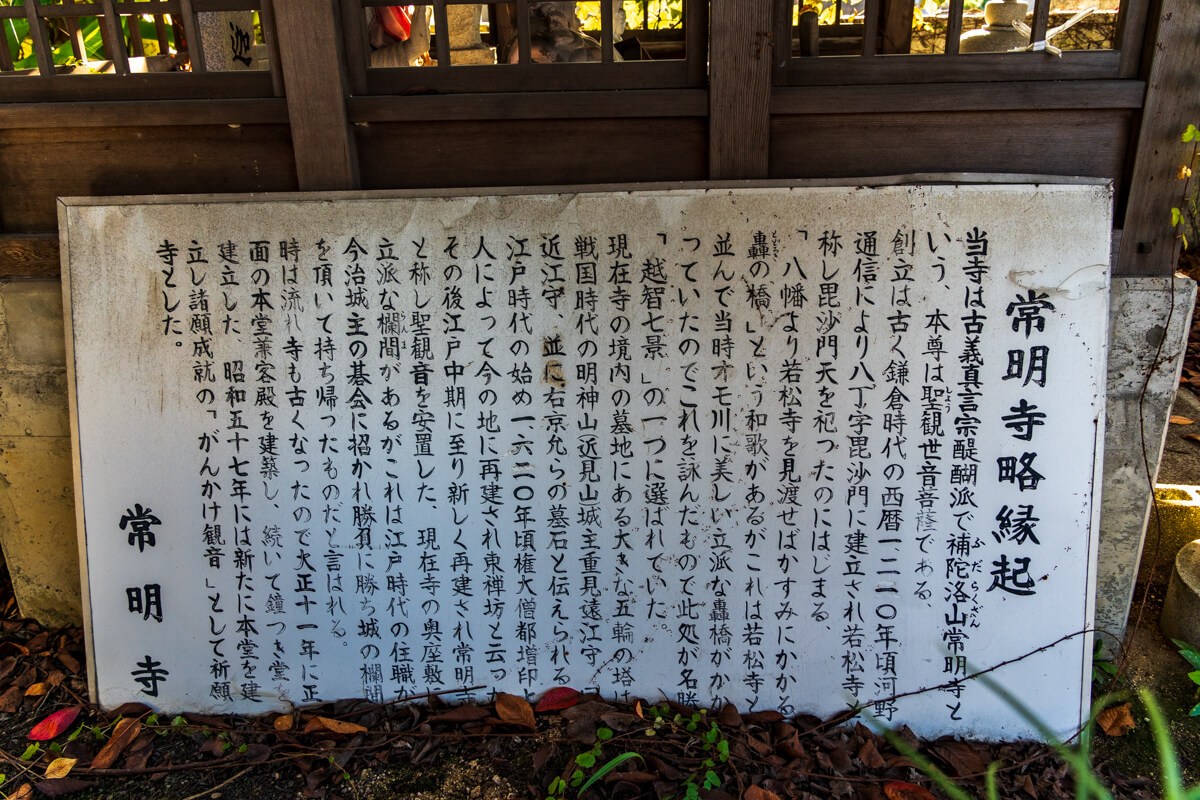 常明寺略縁起
当寺は古義真言宗醍醐派で補陀洛山常明寺と
ふだらくざん
いう、本尊は聖観世音菩薩である、
しょう
創立は古く鎌倉時代の西暦一二一〇年頃河野
通信により八丁字毘沙門に建立され若松寺と
称し毘沙門天を祀ったのにはじまる、
「八幡より若松寺を見渡せばかすみにかかる
轟の橋」という和歌があるがこれは若松寺と
とどろき
並んで当時オモ川に美しい立派な轟橋がかか
っていたのでこれを詠んだもので此処が名勝
「越智七景」の一つに選ばれていた。
現在寺の境内の墓地にある大きな五輪の塔は
戦国時代の明神山近見山城主重見遠江守
近江守、並に右京允らの墓石と伝えられる
江戸時代の始め一六二〇年頃権大僧都増印
人によって今の地に再建され東禅坊と云っ
その後江戸中期に至り新しく再建され常明寺
と称し聖観音を安置した、現在寺の奥座敷
立派な欄間があるがこれは江戸時代の住職が
らんま
今治城主の碁会に招かれ勝負に勝ち城の欄間
を頂いて持ち帰ったものだと言はれる。
時は流れ寺も古くなったので大正十一年に正
面の本堂兼客殿を建築し、続いて鐘つき堂
建立した、昭和五十七年には新たに本堂を建
立し諸願成就の「がんかけ観音」として祈願
寺とした。
常明寺
迦